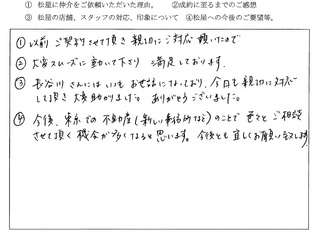 ① 松屋に仲介をご依頼いただいた理由。　②成約に至るまでのご感想
③ 松屋の店舗、スタッフの対応、印象について　④松屋への今後のご要望等。
① 以前ご契約させて頂き親切にご対応頂いたので
② 大変スムーズに動いて下さり 満足しております。
③ 長谷川さんにはいつもお世話になっており、今回も親切に対応
して頂き大変助かりました。ありがとうございました。
④ 今後、東京での不動産(新しい事務所など)のことで色々とご相談
させて頂く機会が多くなると思います。今後とも宜しくお願い致します